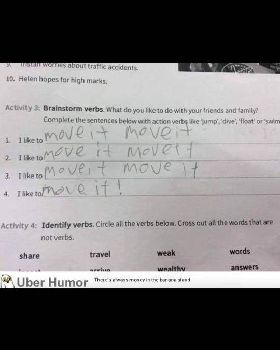 9. Tristan worries about traffic accidents.
10. Helen hopes for high marks.
Activity 3: Brainstorm verbs. What do you like to do with your friends and family?
Complete the sentences below with action verbs like 'jump', 'dive', 'float' or 'swim
1. I like to move it move it
2. I like to move it move it
3. I like to move it move it
4. I like to move it!
Activity 4: Identify verbs. Circle all the verbs below. Cross out all the words that are
not verbs.
share travel weak words
arrive wealthy answers
Uber Humor
There's always money in the banana stand